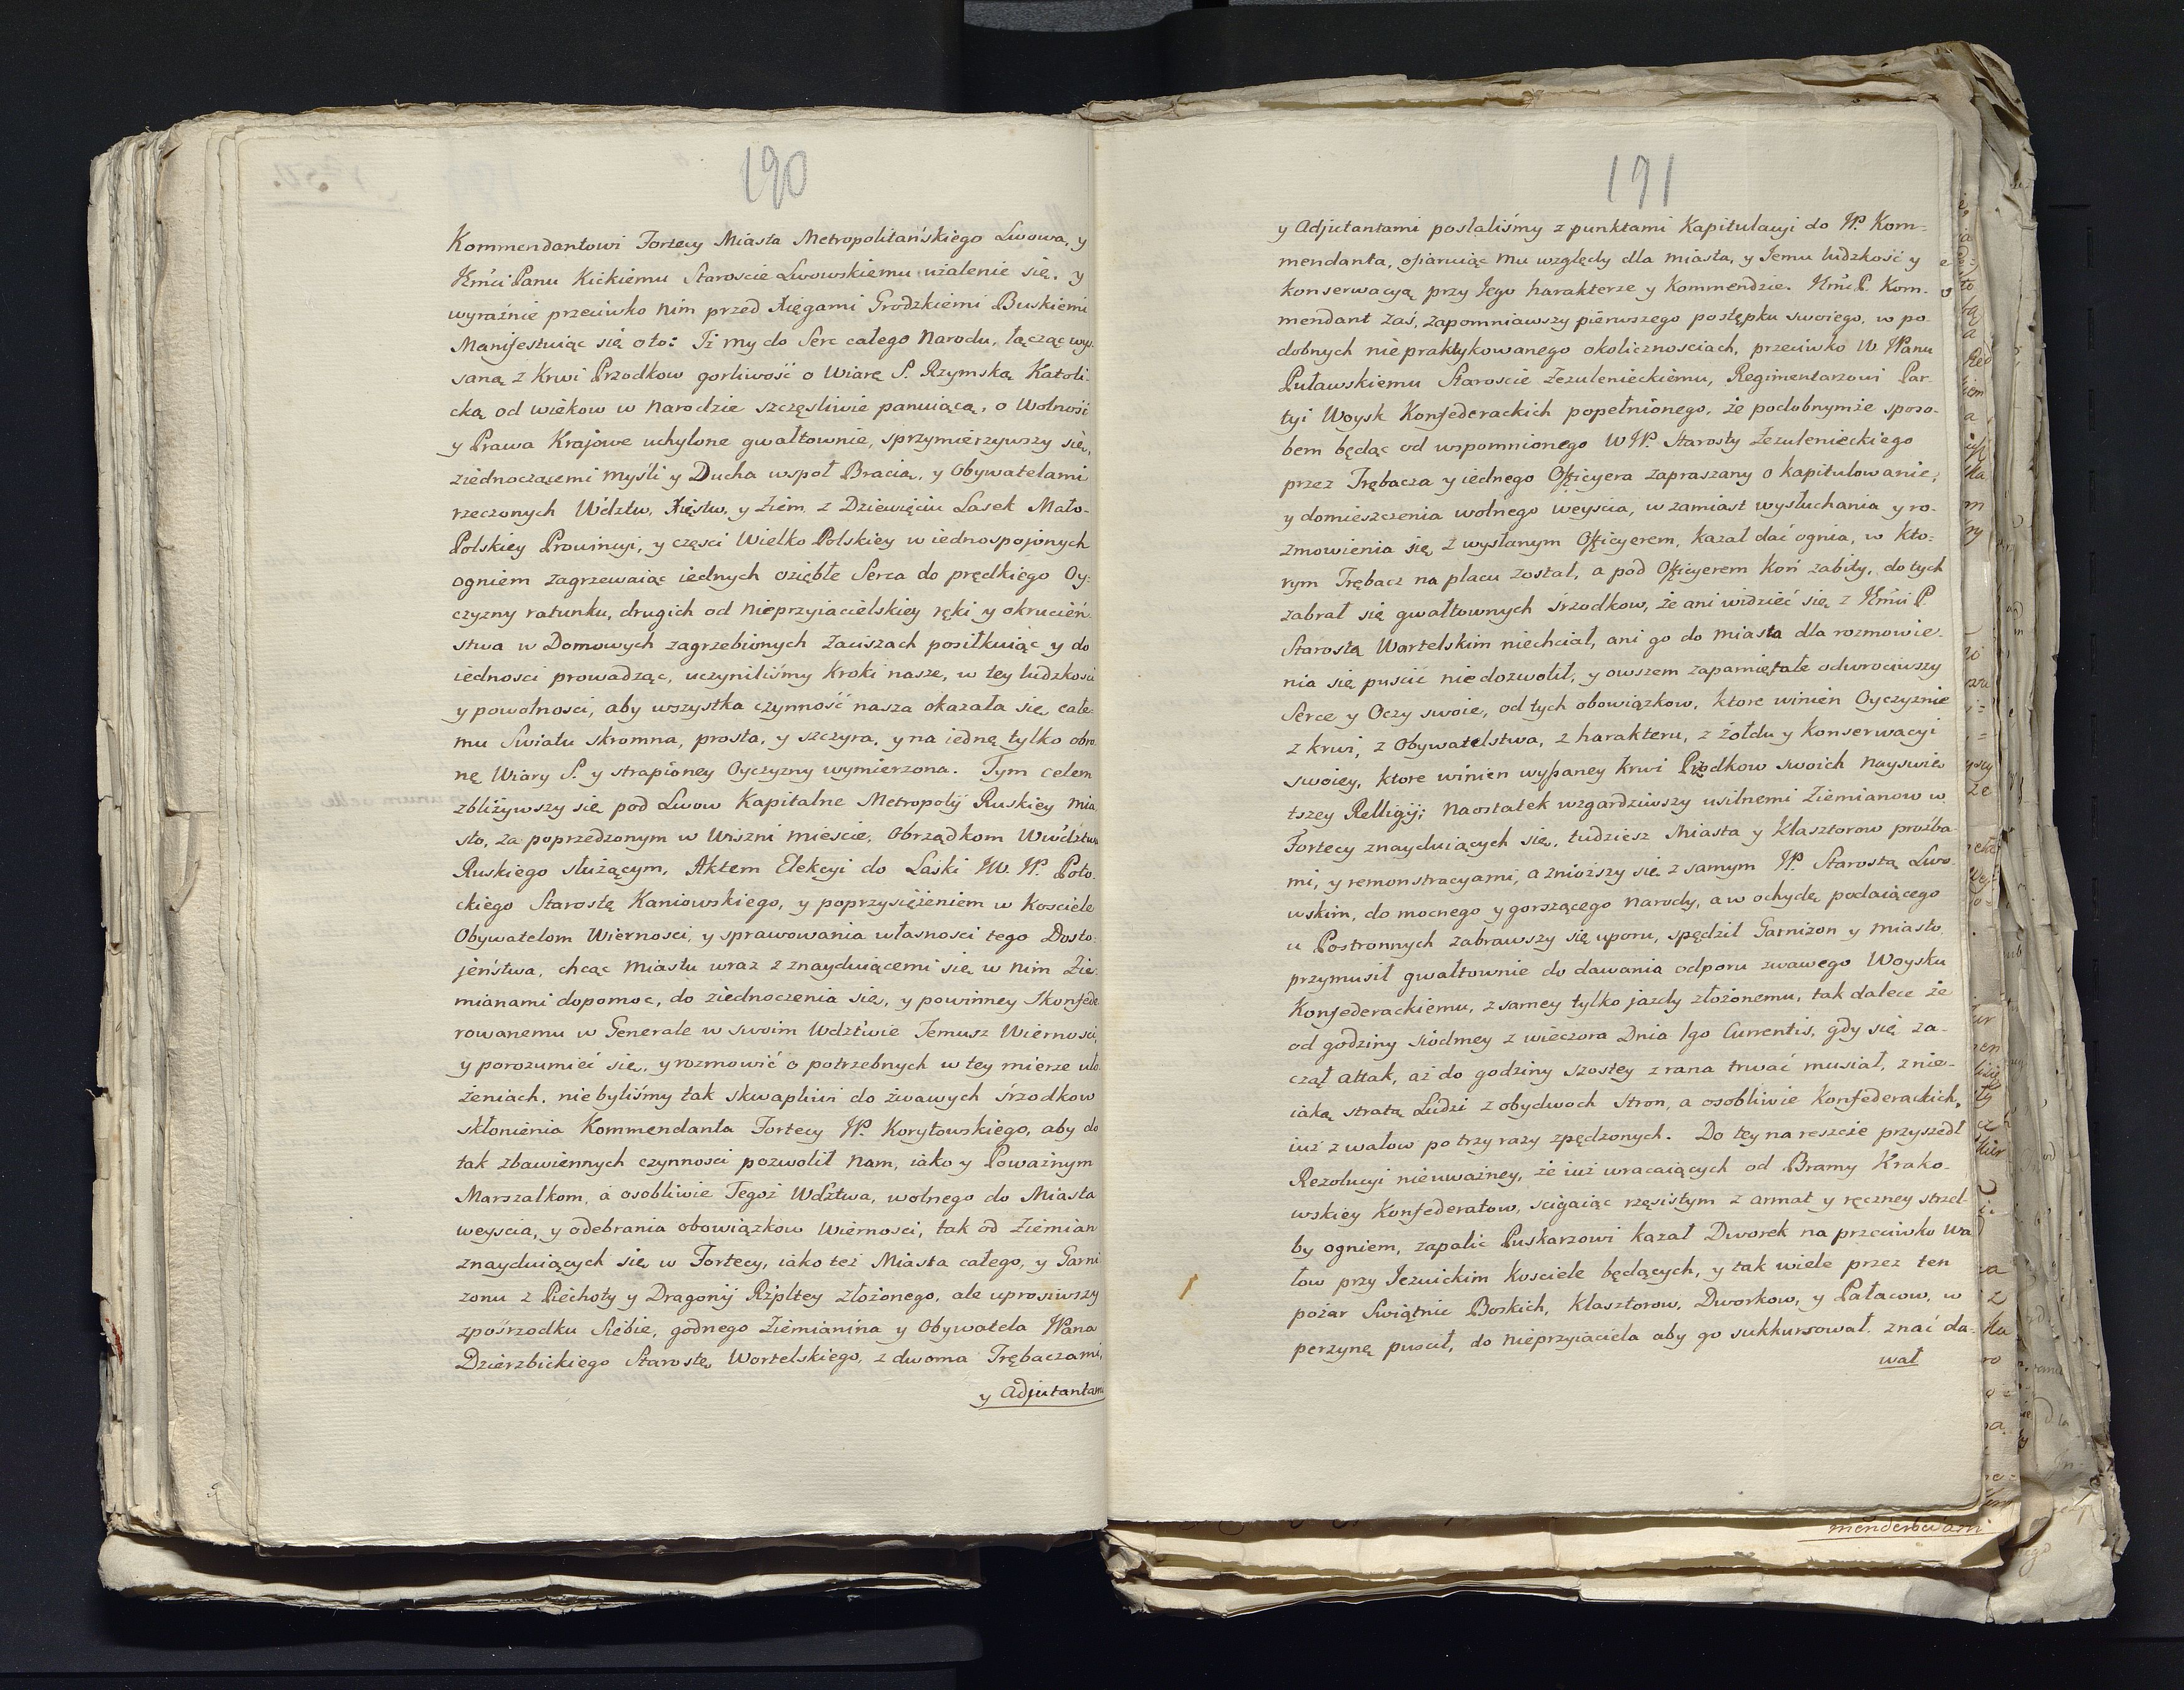 190
Kommendantowi Fortecy Miasta Metropolitańskiego Lwowa, y
Jźmci Panu Kickiemu Staroscie Lwowskiemu użalenie się, y
wyraźnie przeciwko nim przed Xięgami Grodzkiemi Buskiemi
Manifestuiąc się oto: Iż my do Serc całego Narodu, łącząc wys-
saną z Krwi Przodkow gorliwość o Wiarę S. Rzymską Katoli-
cką od wiekow w Narodzie szczęsliwie panuiącą, o Wolnosc
y Prawa Krajowe uchylone gwałtownie, sprzymierzywszy się,
ziednoczącemi mysli y Ducha wspoł Bracią, y Obywatelami
rzeczonych Wdztw, Xięstw, y Ziem, z Dziewięciu Lasek Mało-
Polskiey Prowincyi, y częsci Wielko Polskiey w iednospojonych
ogniem zagrzewaiąc iednych oziębłe Serca do prędkiego Oy-
czyzny ratunku, drugich od Nieprzyiacielskiey ręki y okrucień-
stwa w Domowych zagrzebionych Zaciszach posiłkuiąc y do
iednosci prowadząc, uczyniliśmy Kroki nasze, w tey ludzkosci
y powolnosci, aby wszystka czynność nasza okazała się całe-
mu Swiatu skromna, prosta, y szczyra, y na iednę tylko obro-
nę Wiary S. y strapioney Oyczyzny wymierzona. Tym celem
zbliżywszy się pod Lwow Kapitalne Metropolij Ruskiey Mia-
sto, za poprzedzonym w Wiszni miescie, Obrządkom Wwdztwa
Ruskiego służącym, Aktem Elekcyi do Laski JW. JP. Poto-
ckiego Starostę Kaniowskiego, y poprzysiężeniem w Kosciele
Obywatelom Wiernosci, y sprawowania własnosci tego Dosto-
jeństwa, chcąc Miastu wraz z znayduiącemi się w nim Zie-
mianami dopomoc, do ziednoczenia się, y powinney Skonfede-
rowanemu w Generale w swoim Wdztwie Jemusz Wiernosci,
y porozumieć się, y rozmowić o potrzebnych w tey mierze uło-
żeniach, nie byliśmy tak skwapliwi do żwawych śrzodkow
skłonienia Kommendanta Fortecy JP. Korytowskiego, aby do
tak zbawiennych czynnosci pozwolił Nam, iako y Poważnym
Marszałkom, a osobliwie Tegoż Wdztwa, wolnego do Miasta
weyscia, y odebrania obowiązkow Wiernosci, tak od Ziemian
znayduiących się w Fortecy, iako też Miasta całego, y Garni-
zonu z Piechoty y Dragonij Rzpltey złożonego, ale uprosiwszy
zpośrzodku Siebie, godnego Ziemianina y Obywatela JPana
Dzierzbickiego Starostę Wartelskiego, z dwoma Trębaczami,
y Adjutantami
191
y Adjutantami posłaliśmy z punktami Kapitulacyi do JP. Kom-
mendanta, ofiaruiąc mu względy dla miasta, y Jemu ludzkość y
konserwacyą przy Jego harakterze y Kommendzie. Jźmć P. Kom-
mendant zaś, zapomniawszy pierwszego postępku swoiego, w po-
dobnych niepraktykowanego okolicznosciach, przeciwko W JPanu
Puławskiemu Staroscie Zezulenieckiemu, Regimentarzowi Par-
tyi Woysk Konfederackich popełnionego, że podobnymże sposo-
bem będąc od wspomnionego WJP. Starosty Zezulenieckiego
przez Trębacza y iednego Officyera zapraszany o kapitulowanie,
y domieszczenia wolnego weyscia, w zamiast wysłuchania y ro-
zmowienia się z wysłanym Officyerem, kazał dać ognia, w kto-
rym Trębacz na placu został, a pod Officyerem koń zabity, do tych
zabrał się gwałtownych śrzodkow, że ani widzieć się z Jźmci P.
Starostą Wartelskim niechciał, ani go do miasta dla rozmowie-
nia się puscić niedozwolił, y owszem zapamiętale odwrociwszy
Serce y Oczy swoie, od tych obowiązkow, ktore winien Oyczyznie
z krwi, z Obywatelstwa, z harakteru, z żołdu y Konserwacyi
swoiey, ktore winien wyssaney Krwi Przodkow swoich Nayswię-
tszey Relligij; Naostatek wzgardziwszy usilnemi Ziemianow w
Fortecy znayduiących się, tudziesz Miasta y Klasztorow proźba-
mi, y remonstracyami, a zniozszy się z samym JP. Starostą Lwo-
wskim, do mocnego y gorszącego Narody, a w ochydę podaiącego
u Postronnych zabrawszy się uporu, spędził Garnizon y miasto
przymusił gwałtownie do dawania odporu zwawego Woysku
Konfederackiemu, z samey tylko jazdy złożonemu, tak dalece że
od godziny siodmey z wieczora Dnia 1go Currentis, gdy się za-
czął attak, aż do godziny szostey z rana trwać musiał, z nie-
iaką stratą Ludzi z obydwoch Stron, a osobliwie Konfederackich,
iuż z wałow po trzy razy zpędzonych. Do tey na reszcie przyszedł
Rezolucyi nieuważney, że iuż wracaiących od Bramy Krako-
wskiey Konfederatow, scigaiąc rzęsistym z armat y ręczney strzel-
by ogniem, zapalić Puskarzowi kazał Dworek na przeciwko Wa-
łow przy Jezuickim Kosciele będących, y tak wiele przez ten
pożar Swiątnic Boskich, Klasztorow, Dworkow, y Pałacow, w
perzynę puscił, do Nieprzyiaciela aby go sukkursował. znać da-
wał